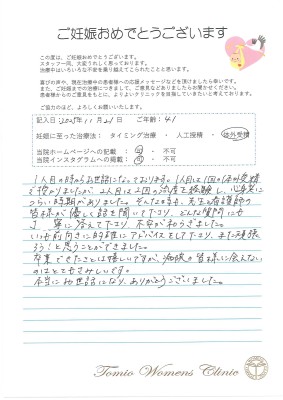 ご妊娠おめでとうございます
この度は、ご妊娠おめでとうございます。
スタッフ一同、大変うれしく思っております。
治療中はいろいろな不安を乗り越えてこられたことと思います。
喜びの声や、現在治療中の患者様への応援メッセージなどを頂けましたら幸いです。
また、ご妊娠までの治療につきまして、ご意見などありましたらお聞かせください。
患者様からのご意見をもとに、よりよいクリニックを目指していきたいと考えております。
ご協力のほど、よろしくお願いいたします。
記入日：2025年11月21日 ご年齢：41
妊娠に至った治療法： タイミング治療 ・ 人工授精 ・ 体外受精
当院ホームページへの記載： 可 ・ 不可
当院インスタグラムへの掲載： 可 ・ 不可
1人目の時からお世話になっております。1人目は1回の体外受精
で授かりましたが、2人目は2回の流産を経験し、心身共に
つらい時期がありました。そんな時も、先生と看護師の
皆様が優しく話を聞いて下さり、どんな質問にも
丁寧に答えて下さり、不安が和らぎました。
いつも前向きに的確にアドバイスをして下さり、また頑張
ろう！と思うことができました。
卒業できたことは嬉しいですが、病院の皆様に会えない
のはとてもさみしいです。
本当にお世話になり、ありがとうございました。
Tomio Womens Clinic